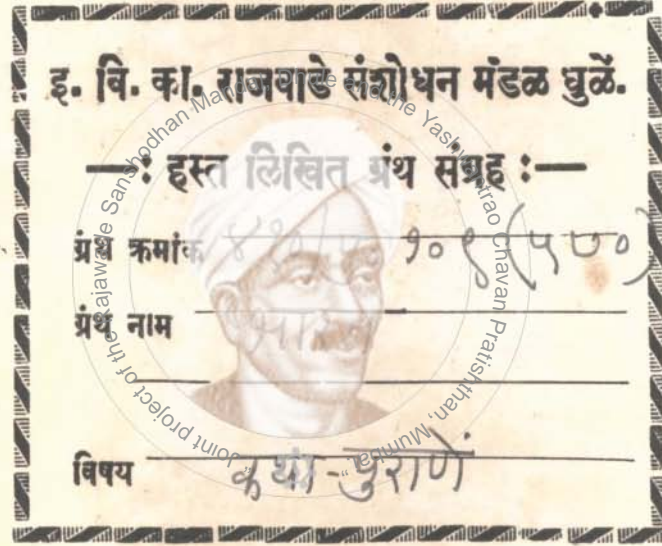 इ. वि. का. राजवाडे संशोधन मंडळ धुळें.
—: हस्त लिखित ग्रंथ संग्रह :—
ग्रंथ क्रमांक १०९ (५७०)
ग्रंथ नाम
विषय कथा-पुराणें
"Joint project of the Rajawade Sanshodhan Mandal, Dhule and the Yashwantrao Chavan Pratishthan, Mumbai."